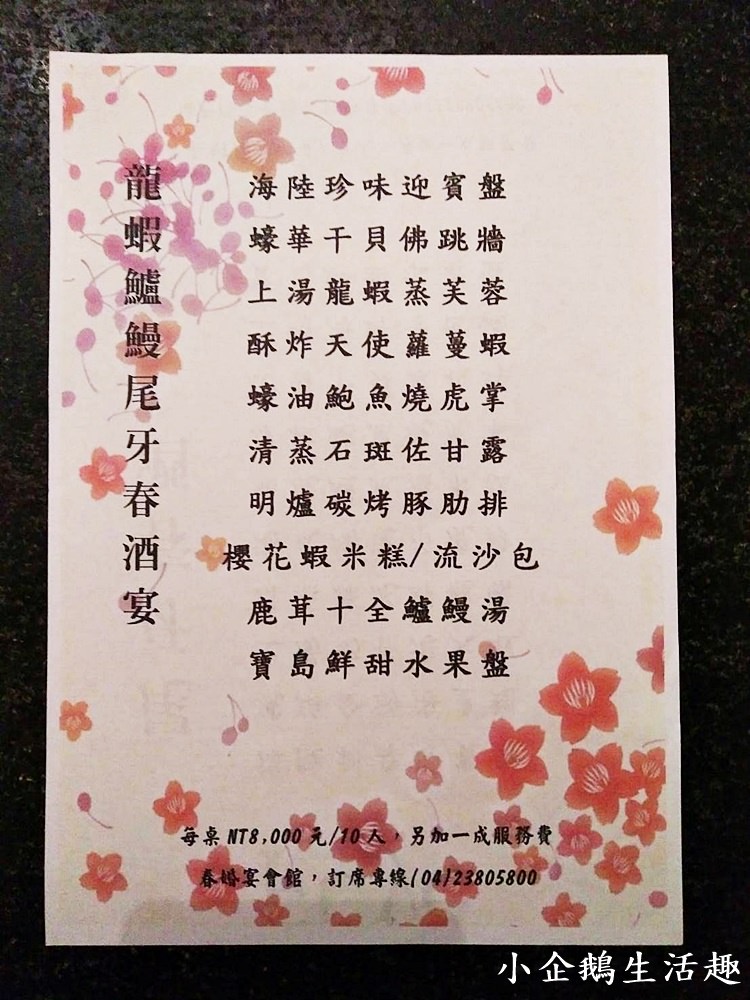 龍蝦鱸鰻尾牙春酒宴
海陸珍味迎賓盤
蠔華干貝佛跳牆
上湯龍蝦蒸芙蓉
酥炸天使蘿蔓蝦
蠔油鮑魚燒虎掌
清蒸石斑佐甘露
明爐碳烤豚肋排
櫻花蝦米糕/流沙包
鹿茸十全鱸鰻湯
寶島鮮甜水果盤
每桌NT8,000元/10人，另加一成服務費
春婚宴會館，訂席專線(04)23805800
小企鵝生活趣